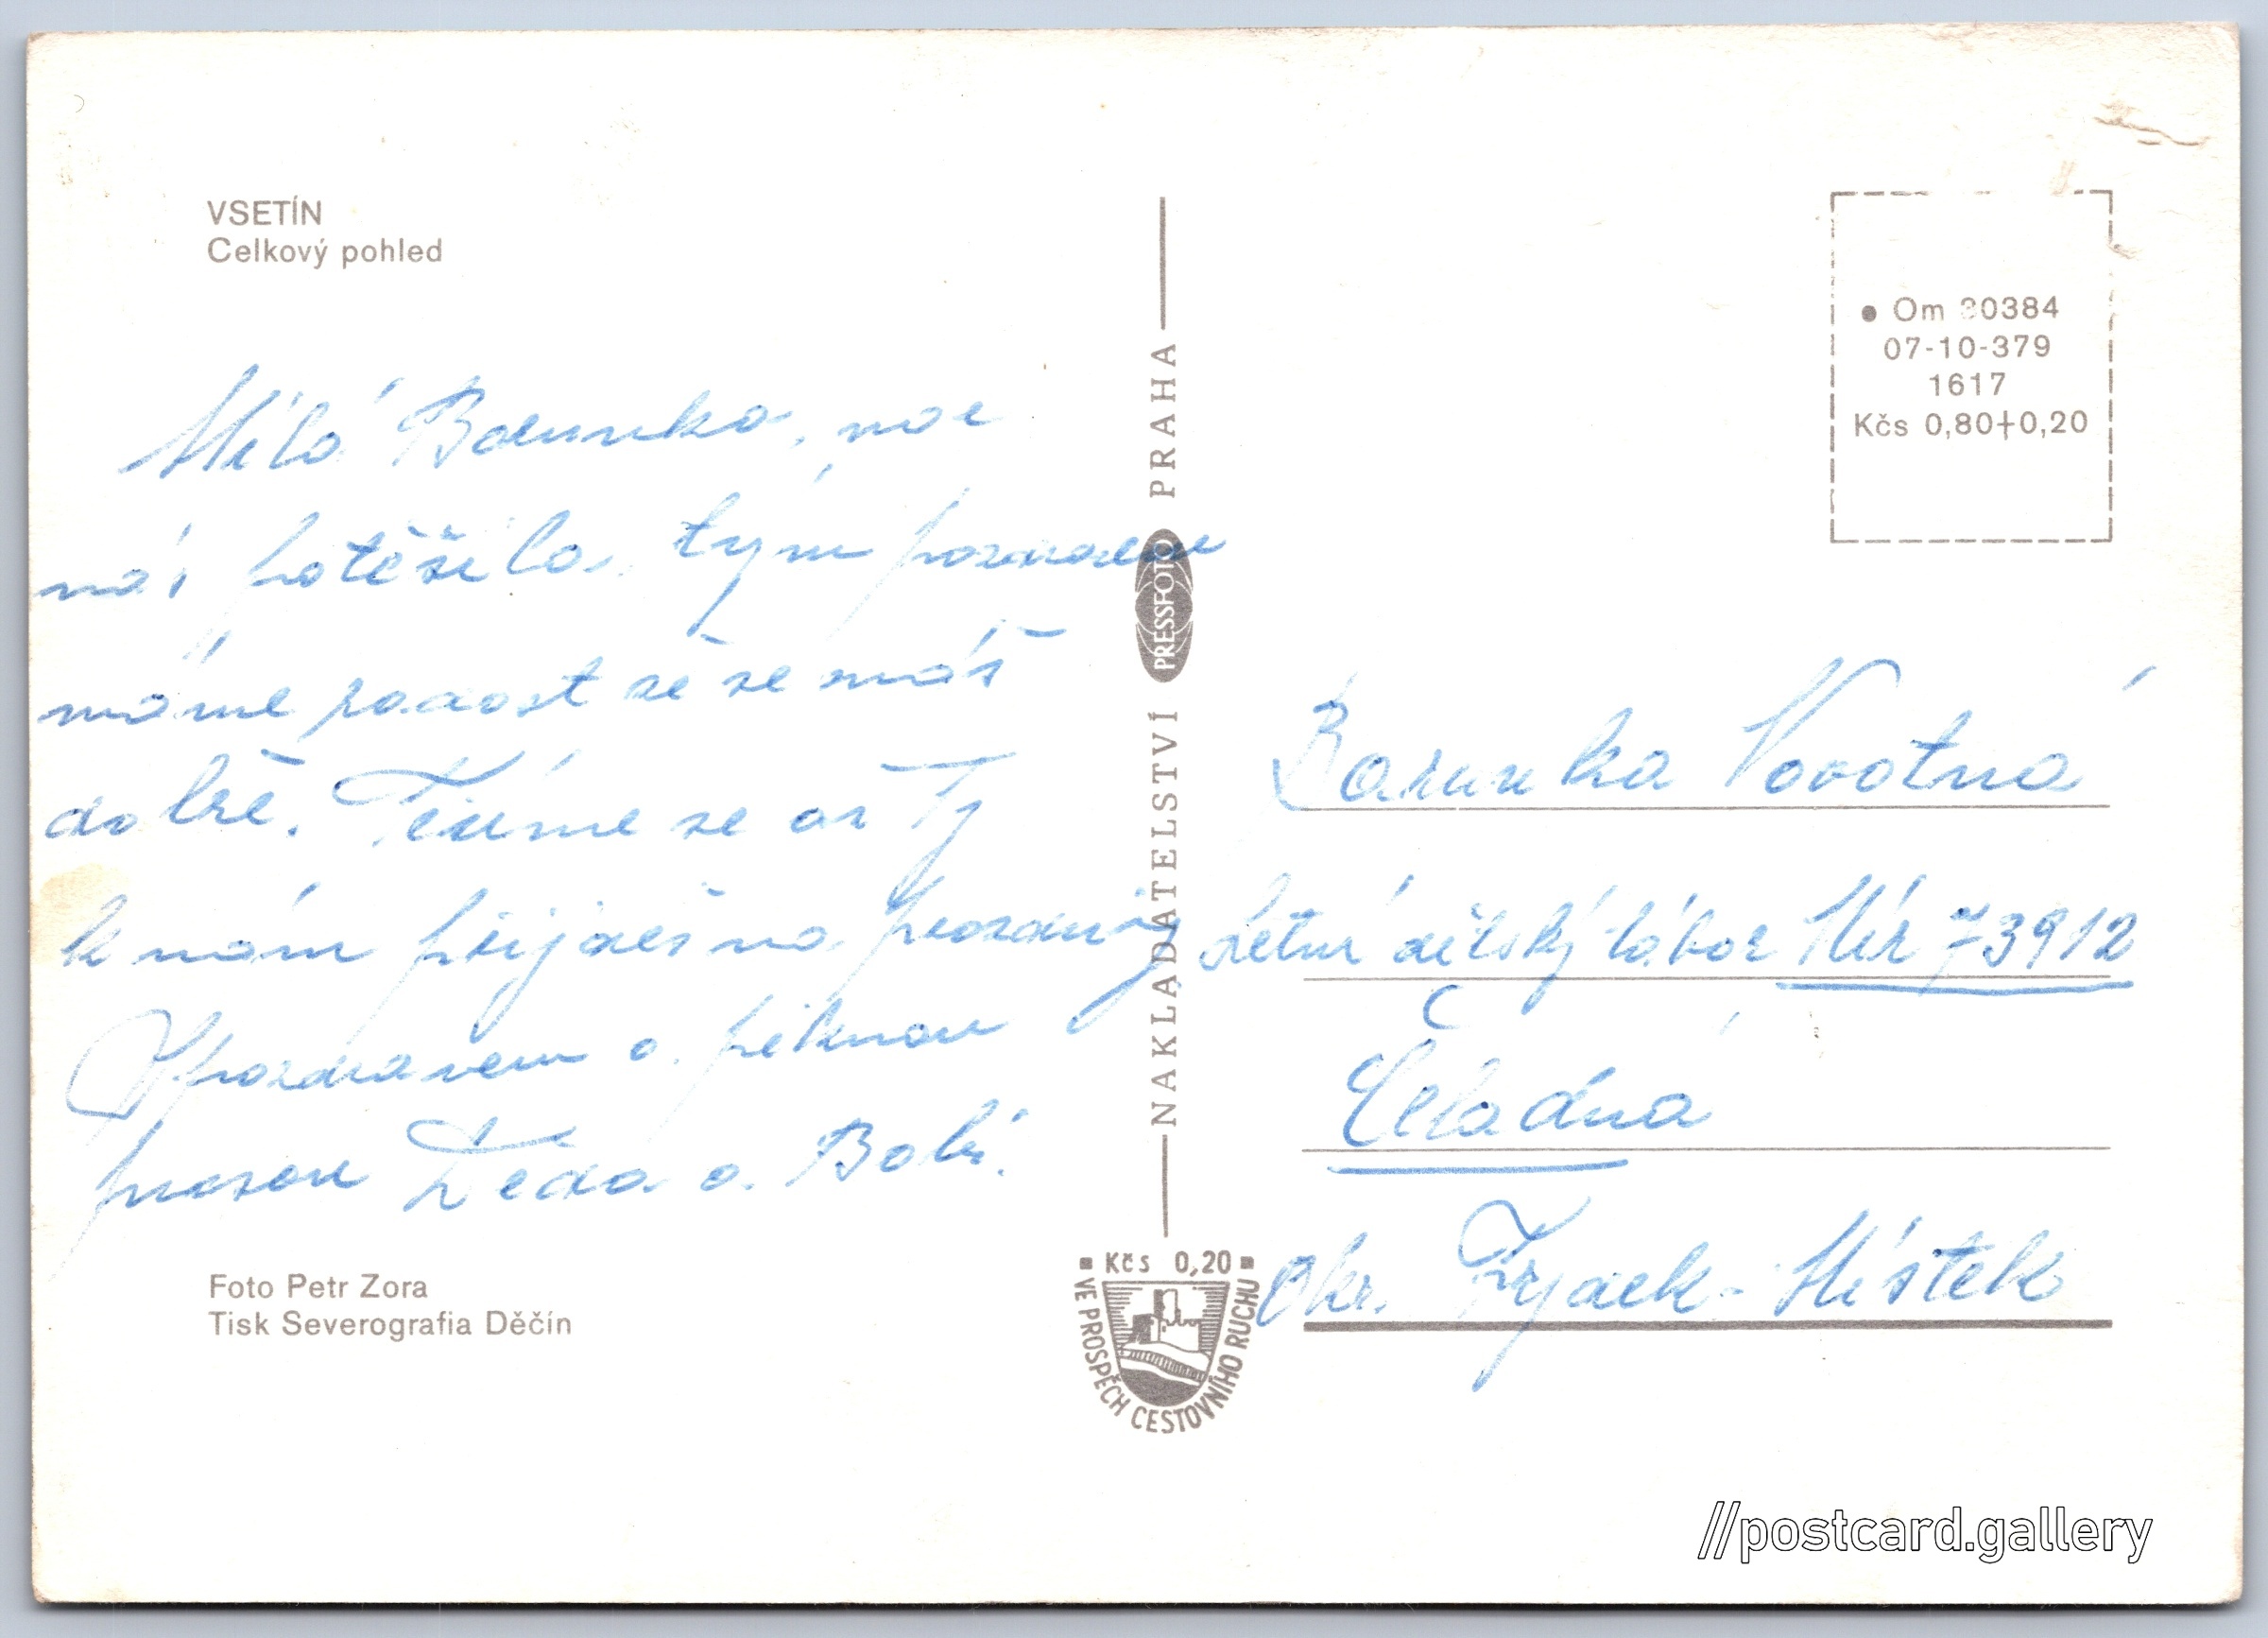 VSETÍN
Celkový pohled
Milá Barunko, moc
nás potěšila, tým pozdravem
máme radost že se máš
dobře. Těšíme se až Ty
k nám přijdeš na prázdniny
S pozdravem a pěknou
pusou Děda a Babi.
Foto Petr Zora
Tisk Severografia Děčín
NAKLADATELSTVÍ PRESSFOTO PRAHA
Kčs 0,20
VE PROSPĚCH CESTOVNÍHO RUCHU
Om 30384
07-10-379
1617
Kčs 0,80+0,20
Barunka Novotná
Letní dětský tábor Mír 73912
Čeladná
Okr. Frýdek-Místek
//postcard.gallery